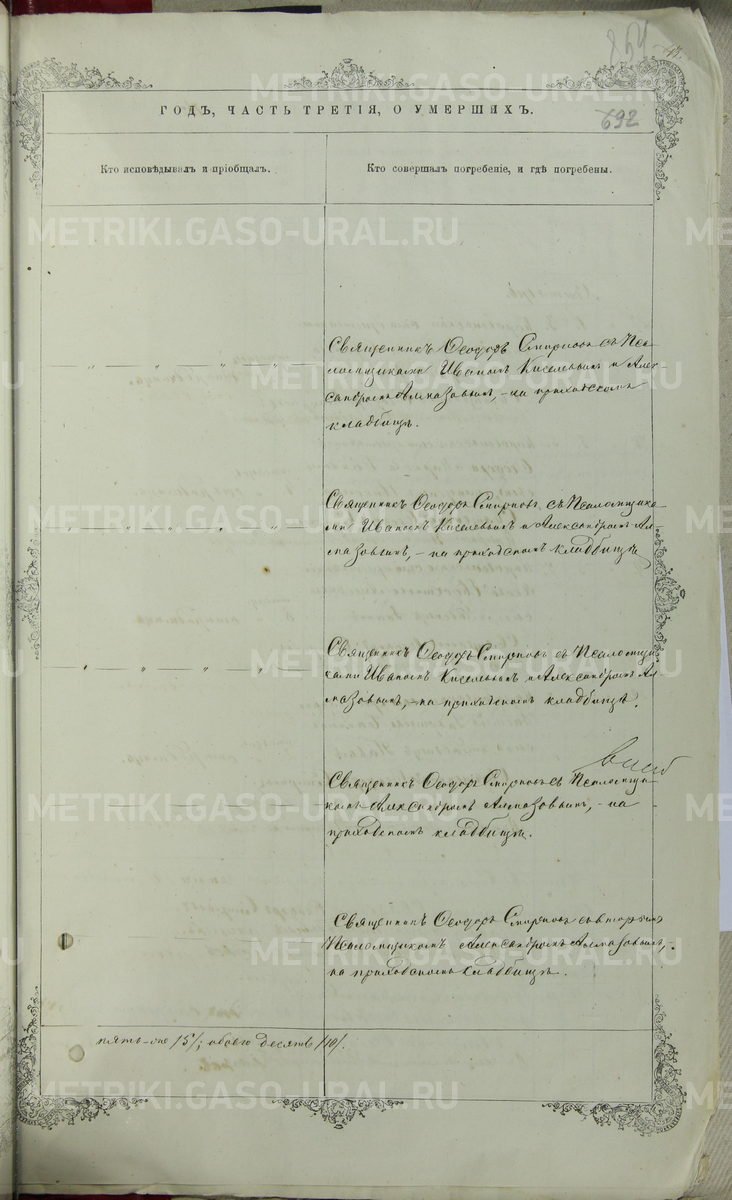 692
ГОДЪ, ЧАСТЬ ТРЕТІЯ, О УМЕРШИХЪ.
Кто исповѣдывалъ и пріобщалъ.
Кто совершалъ погребеніе, и гдѣ погребены.
Священникъ Ѳеодоръ Смирновъ съ Пса-
ломщиками Иваномъ Киселевымъ и Алек-
сандромъ Алмазовымъ, – на приходскомъ
кладбищѣ.
Священникъ Ѳеодоръ Смирновъ съ Псаломщика-
ми Иваномъ Киселевымъ и Александромъ Ал-
мазовымъ, – на приходскомъ кладбищѣ
Священникъ Ѳеодоръ Смирновъ съ Псаломщи-
ками Иваномъ Киселевымъ и Александромъ Ал-
мазовымъ, – на приходскомъ кладбищѣ.
Священникъ Ѳеодоръ Смирновъ съ Псаломщи-
комъ Александромъ Алмазовымъ, – на
приходскомъ кладбищѣ.
Священникъ Ѳеодоръ Смирновъ съ
Псаломщикомъ Александромъ Алмазовымъ,
на приходскомъ кладбищѣ.
пять /5/; обоего десять /10/.
METRIKI.GASO-URAL.RU
METRIKI.GASO-URAL.RU
METRIKI.GASO-URAL.RU
METRIKI.GASO-URAL.RU
METRIKI.GASO-URAL.RU
METRIKI.GASO-URAL.RU
METRIKI.GASO-URAL.RU
METRIKI.GASO-URAL.RU